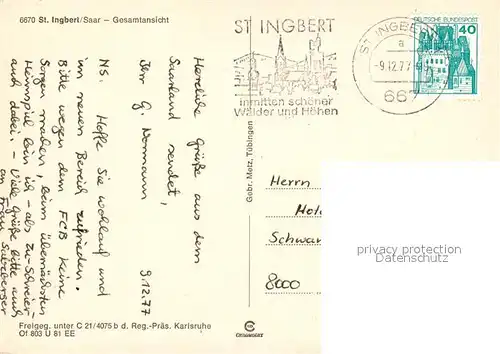 6670 St. Ingbert/Saar – Gesamtansicht
ST INGBERT
inmitten schöner
Wälder und Höhen
ST. INGBERT
a
-9.12.77
667
DEUTSCHE BUNDESPOST
40
Herzliche Grüße aus dem
Saarland sendet,
Ihr G. Normann
9.12.77
NS. Hoffe Sie wohlauf und
im neuen Bereich zufrieden.
Bitte wegen dem FCB keine
Sorgen machen, beim übernächsten
Heimspiel bin ich - als zu-Schreier-
auch dabei. - Viele Grüße bitte auch
an Frau Salzberger
Gebr. Metz, Tübingen
Herrn
Schwan
8000
privacy protection
Datenschutz
Freigeg. unter C 21/4075 b d. Reg.-Präs. Karlsruhe
Of 803 U 81 EE